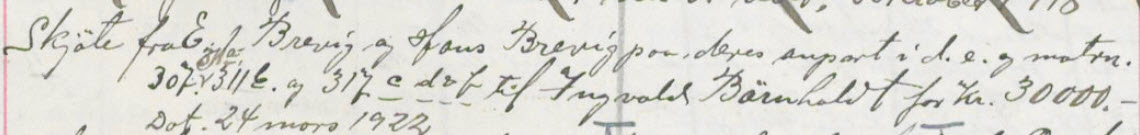 Skjöte fra E. Brevig og Hans Brevig paa deres anpart i d. e. g matrn.
307, 311 b. og 317 c d & f til Ingvald Bärnholdt for kr. 30000.-
Dat. 24 mars 1922